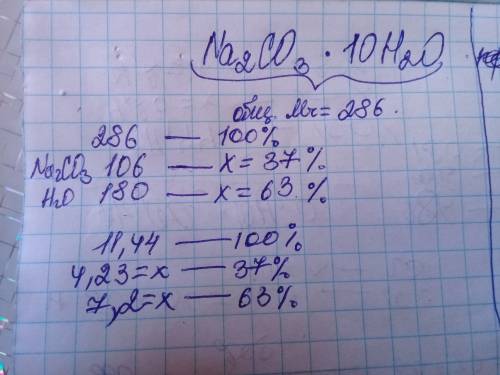 Na₂CO₃ · 10H₂O
общ. Mr = 286.
286 — 100%
Na₂CO₃ 106 — x = 37%
H₂O 180 — x = 63%
11,44 — 100%
4,23 = x — 37%
7,2 = x — 63%